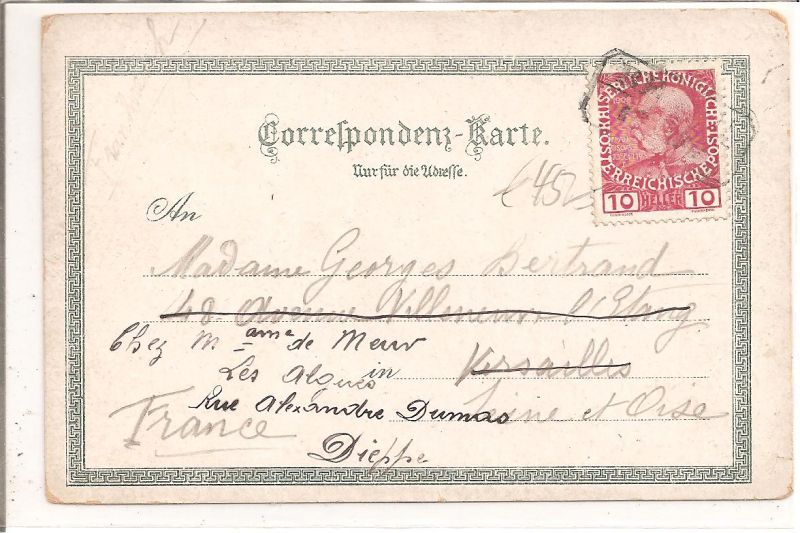 Correspondenz-Karte.
Nur für die Adresse.
KAISERLICHE KÖNIGLICHE
ÖSTERREICHISCHE POST
10 HELLER 10
45
An
Madame Georges Bertrand
48 Avenue Villeneuve l'Etang
Chez Mame de Meur
Les Algues in Versailles
Rue Alexandre Dumas Seine et Oise
France
Dieppe